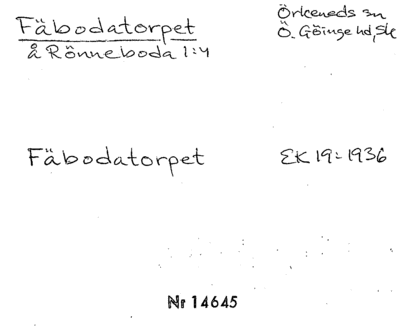 Fäbodatorpet
å Rönneboda 1:4
Örkeneds sn
Ö. Göinge hd, Sk
Fäbodatorpet
EK 19:1936
Nr 14645